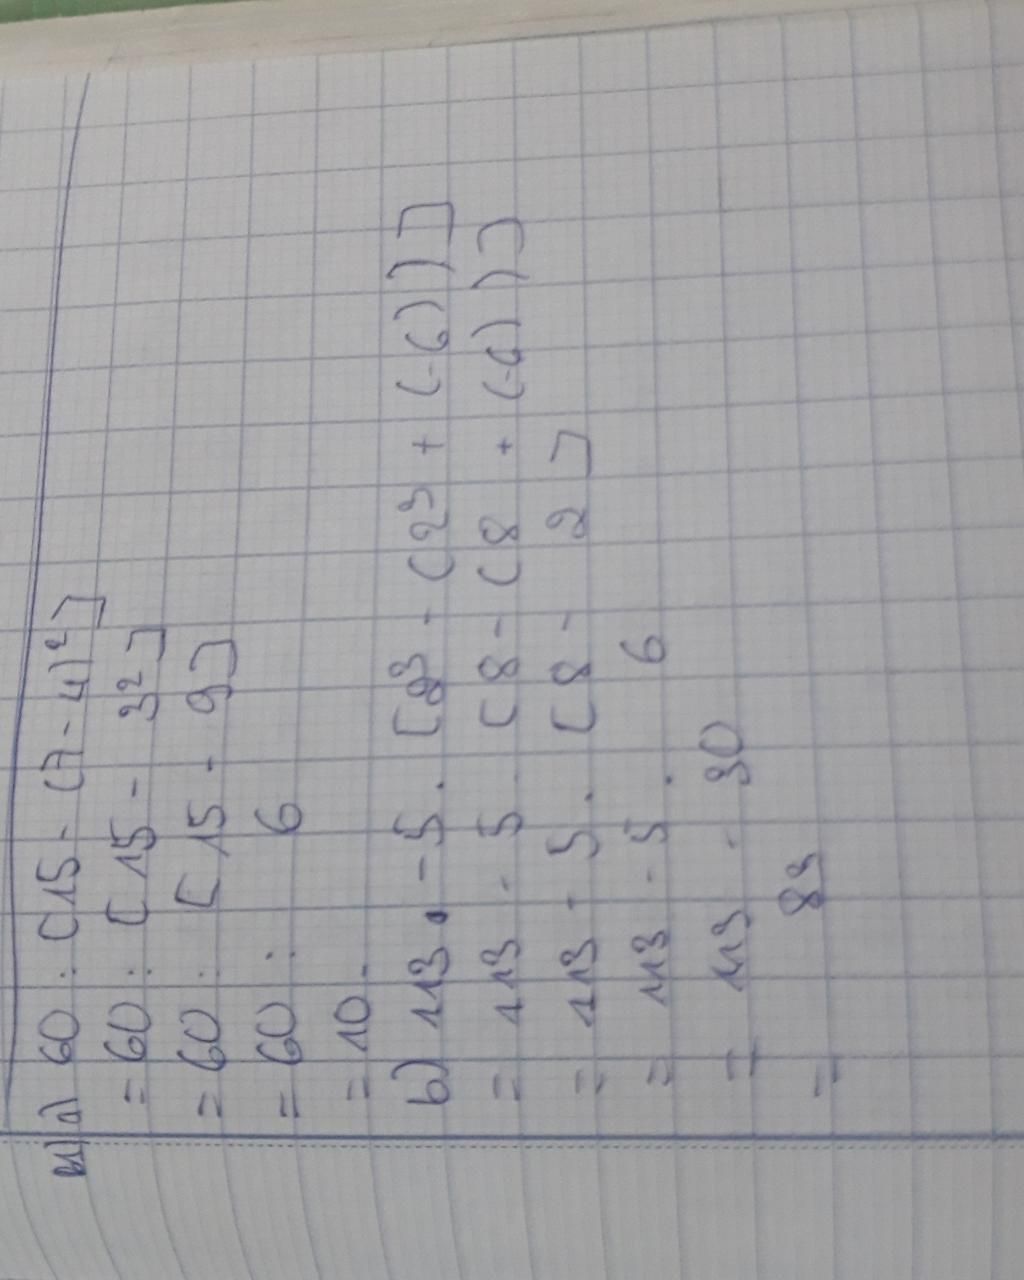 a) 60 : [15 - (7 - 4)²]
= 60 : [15 - 3²]
= 60 : [15 - 9]
= 60 : 6
= 10.
b) 113 - 5 . [2³ - (2³ + (-6))]
= 113 - 5 [8 - (8 + (-6))]
= 113 - 5 . [8 - 2]
= 113 - 5 . 6
= 113 - 30
= 83